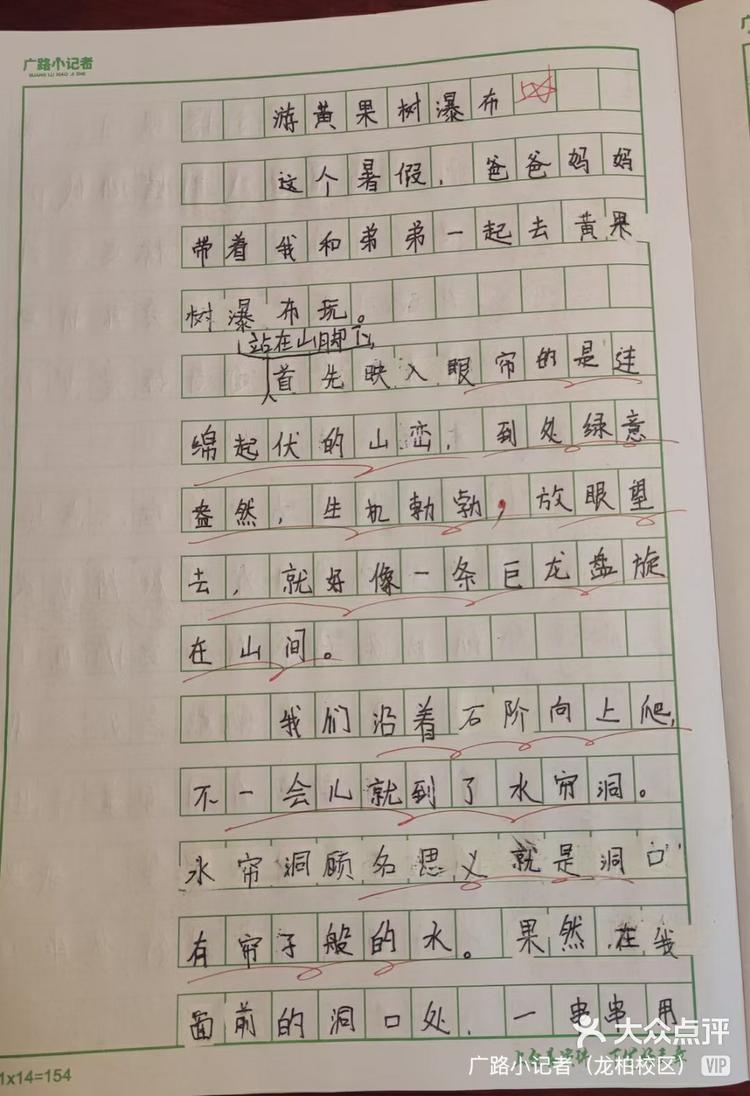 广路小记者
GUANG LU XIAO JI ZHE
游黄果树瀑布
这个暑假，爸爸妈妈
带着我和弟弟一起去黄果
树瀑布玩。
站在山脚下，
首先映入眼帘的是连
绵起伏的山峦，到处绿意
盎然，生机勃勃，放眼望
去，就好像一条巨龙盘旋
在山间。
我们沿着石阶向上爬，
不一会儿就到了水帘洞。
水帘洞顾名思义就是洞口
有帘子般的水。果然，在我
面前的洞口处，一串串用
1x14=154
大众点评
广路小记者（龙柏校区） VIP